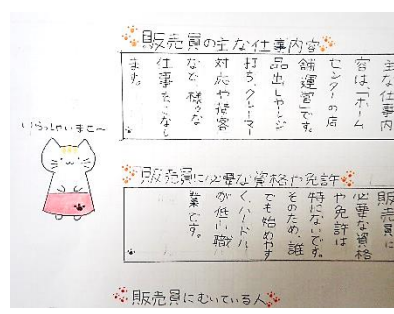 販売員の主な仕事内容
主な仕事内
容は、「ホーム
センターの店
舗運営」です。
品出し、レジ
打ち、クレーマー
対応や接客
など様々な
仕事をこなし
ます。
いらっしゃいませ〜
販売員に必要な資格や免許
販売員に
必要な資格
や免許は
特にないです。
そのため、誰
でも始めやす
く、ハードル
が低い職
業です。
販売員にむいている人